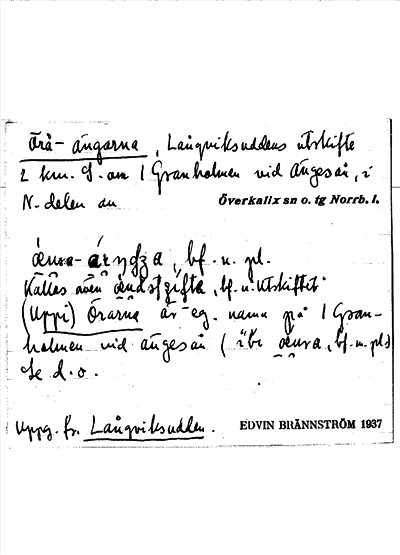 Örå-ängarna, Långviksuddens utskifte
2 km. S. om 1 Granholmen vid Ängesån, i
N. delen av Överkalix sn o. tg Norrb. l.
bf. n. pl.
Kallas även bf. n. "Utskiftet"
(Uppi) Örarna är eg. namn på 1 Gran-
holmen vid ängesån ( bf. n. pl.)
Se d. o.
Uppg. fr. Långviksudden. EDVIN BRÄNNSTRÖM 1937